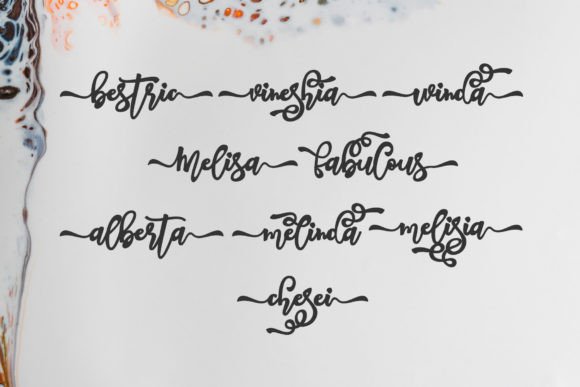 bestric vineshia winda
Melisa fabulous
alberta melinda melisia
chesei